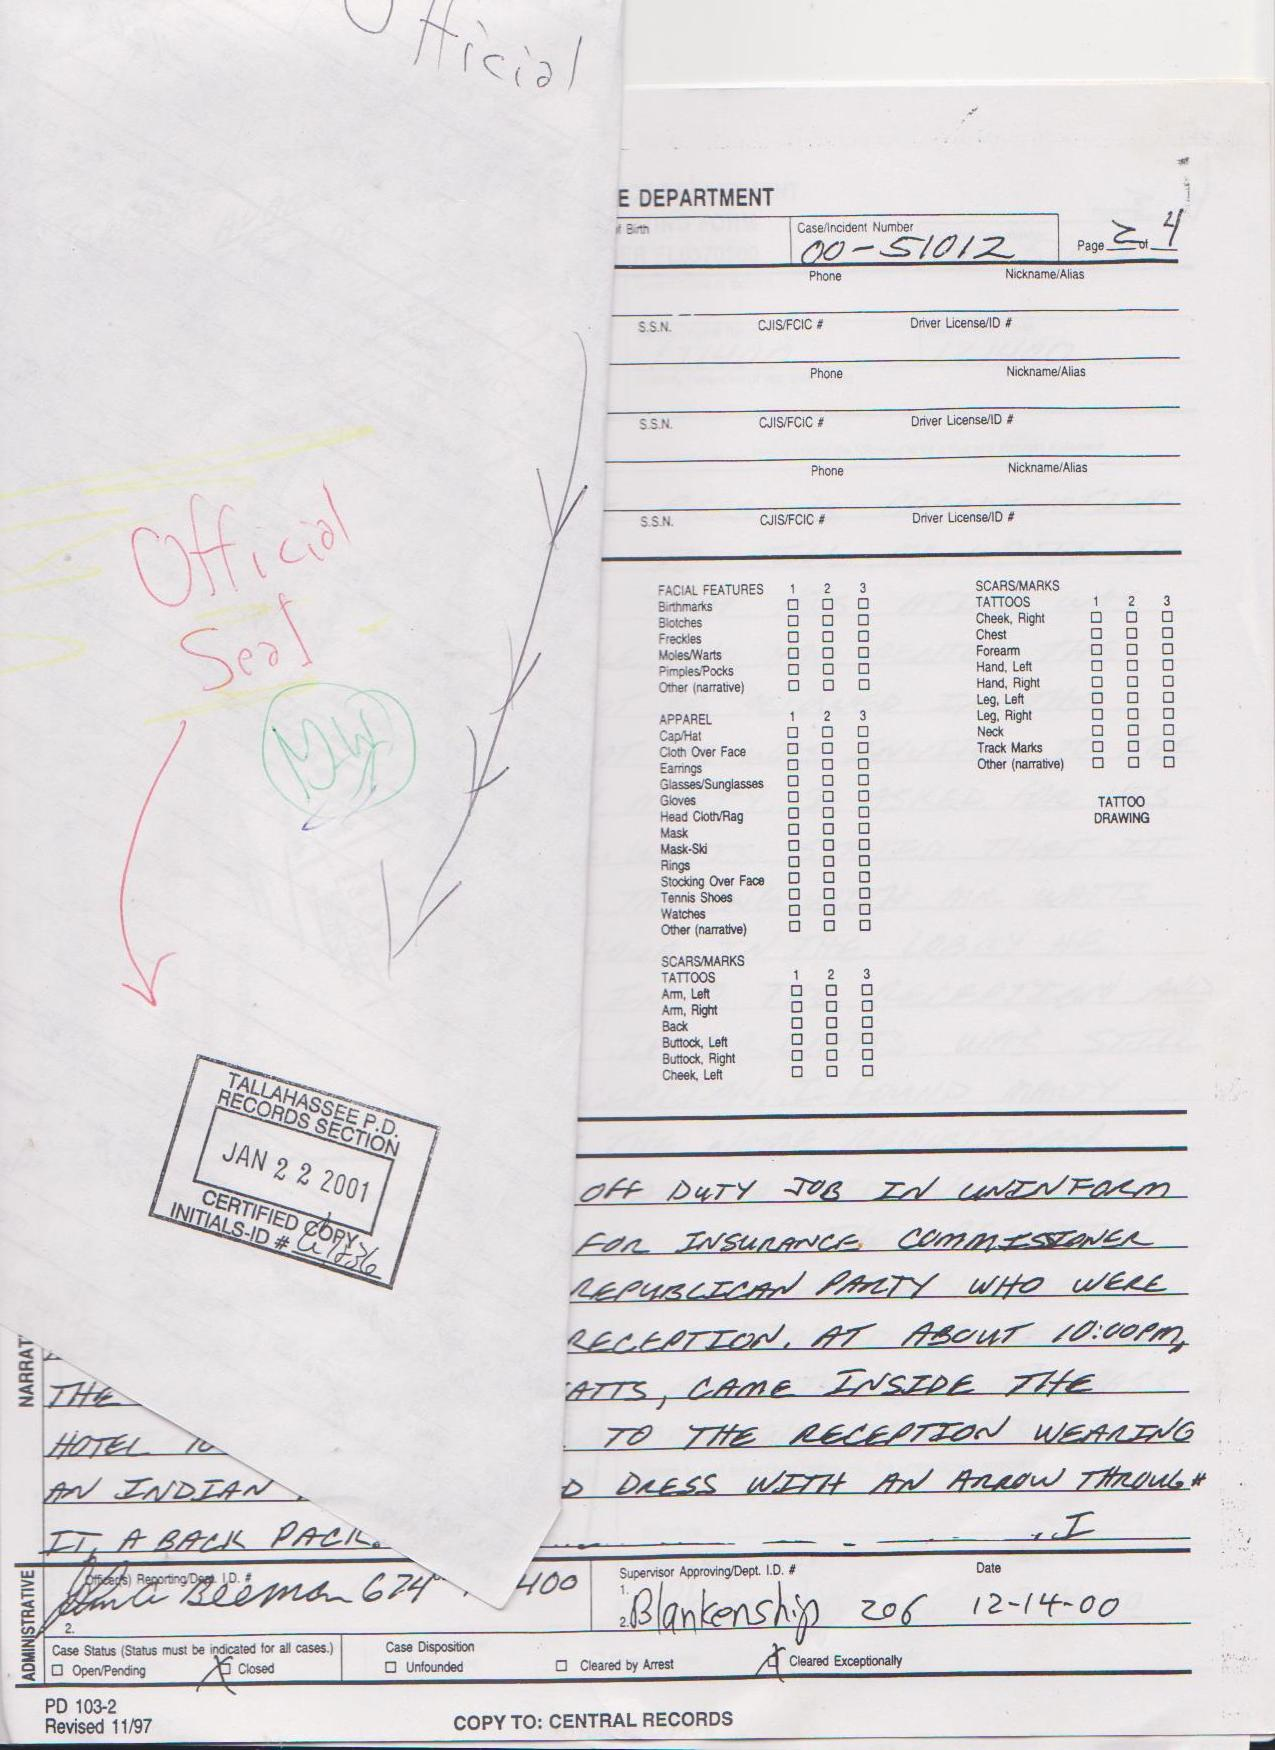 Official
E DEPARTMENT
of Birth
Case/Incident Number
00-51012
Page 2 of 4
Phone Nickname/Alias
S.S.N. CJIS/FCIC # Driver License/ID #
Phone Nickname/Alias
S.S.N. CJIS/FCIC # Driver License/ID #
Phone Nickname/Alias
S.S.N. CJIS/FCIC # Driver License/ID #
Official
Seal
MW
FACIAL FEATURES 1 2 3
Birthmarks
Blotches
Freckles
Moles/Warts
Pimples/Pocks
Other (narrative)
APPAREL 1 2 3
Cap/Hat
Cloth Over Face
Earrings
Glasses/Sunglasses
Gloves
Head Cloth/Rag
Mask
Mask-Ski
Rings
Stocking Over Face
Tennis Shoes
Watches
Other (narrative)
SCARS/MARKS
TATTOOS 1 2 3
Arm, Left
Arm, Right
Back
Buttock, Left
Buttock, Right
Cheek, Left
SCARS/MARKS
TATTOOS 1 2 3
Cheek, Right
Chest
Forearm
Hand, Left
Hand, Right
Leg, Left
Leg, Right
Neck
Track Marks
Other (narrative)
TATTOO
DRAWING
TALLAHASSEE P.D.
RECORDS SECTION
JAN 22 2001
CERTIFIED COPY
INITIALS-ID #
NARRAT
OFF DUTY JOB IN UNINFORM
FOR INSURANCE COMMISSIONER
REPUBLICAN PARTY WHO WERE
RECEPTION. AT ABOUT 10:00PM,
THE ATTS, CAME INSIDE THE
HOTEL TO THE RECEPTION WEARING
AN INDIAN D DRESS WITH AN ARROW THROUGH
IT, A BACK PACK. . I
ADMINISTRATIVE
Officer(s) Reporting/Dept. I.D. #
Beeman 674 400
2.
Supervisor Approving/Dept. I.D. # Date
1.
2. Blankenship 206 12-14-00
Case Status (Status must be indicated for all cases.)
Open/Pending X Closed
Case Disposition
Unfounded Cleared by Arrest X Cleared Exceptionally
PD 103-2
Revised 11/97
COPY TO: CENTRAL RECORDS